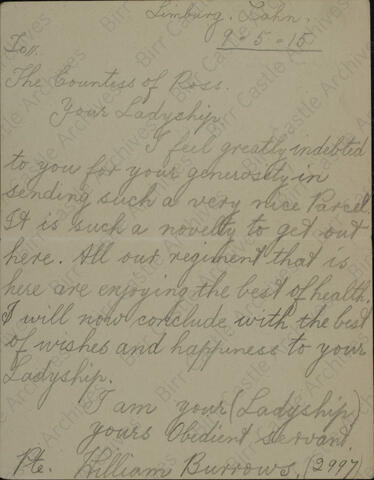 Limburg. Lahn.
9-5-15
To:
The Countess of Ross.
Your Ladyship,
I feel greatly indebted
to you for your generosity in
sending such a very nice Parcel.
It is such a novelty to get out
here. All our regiment that is
here are enjoying the best of health.
I will now conclude with the best
of wishes and happiness to your
Ladyship.
I am your (Ladyship)
yours Obedient servant.
Pte. William Burrows. (2997)
Birr Castle Archives